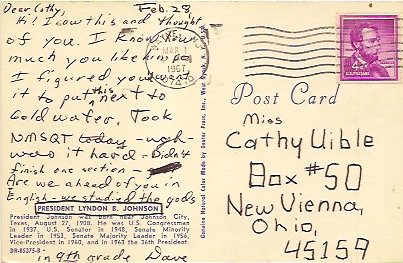 Dear Cathy,
Feb. 28
Hi! I saw this and thought
of you. I know how
much you like him, so
I figured you want
it to put this next to
Goldwater. Took
NMSQT today - ugh -
was it hard - Didn't
finish one section -
Are we ahead of you in
English - we studied the gods
in 9th grade Dave
PRESIDENT LYNDON B. JOHNSON
President Johnson was born near Johnson City,
Texas, August 27, 1908. He was U.S. Congressman
in 1937, U.S. Senator in 1948, Senate Minority
Leader in 1953, Senate Majority Leader in 1956,
Vice-President in 1960, and in 1963 the 36th President.
DR-85375-B
Genuine Natural Color Made by Dexter Press, Inc., West Nyack, N.Y.
MAR 1
1967
4¢
U.S. POSTAGE
Post Card
Miss
Cathy Uible
Box #50
New Vienna,
Ohio,
45159